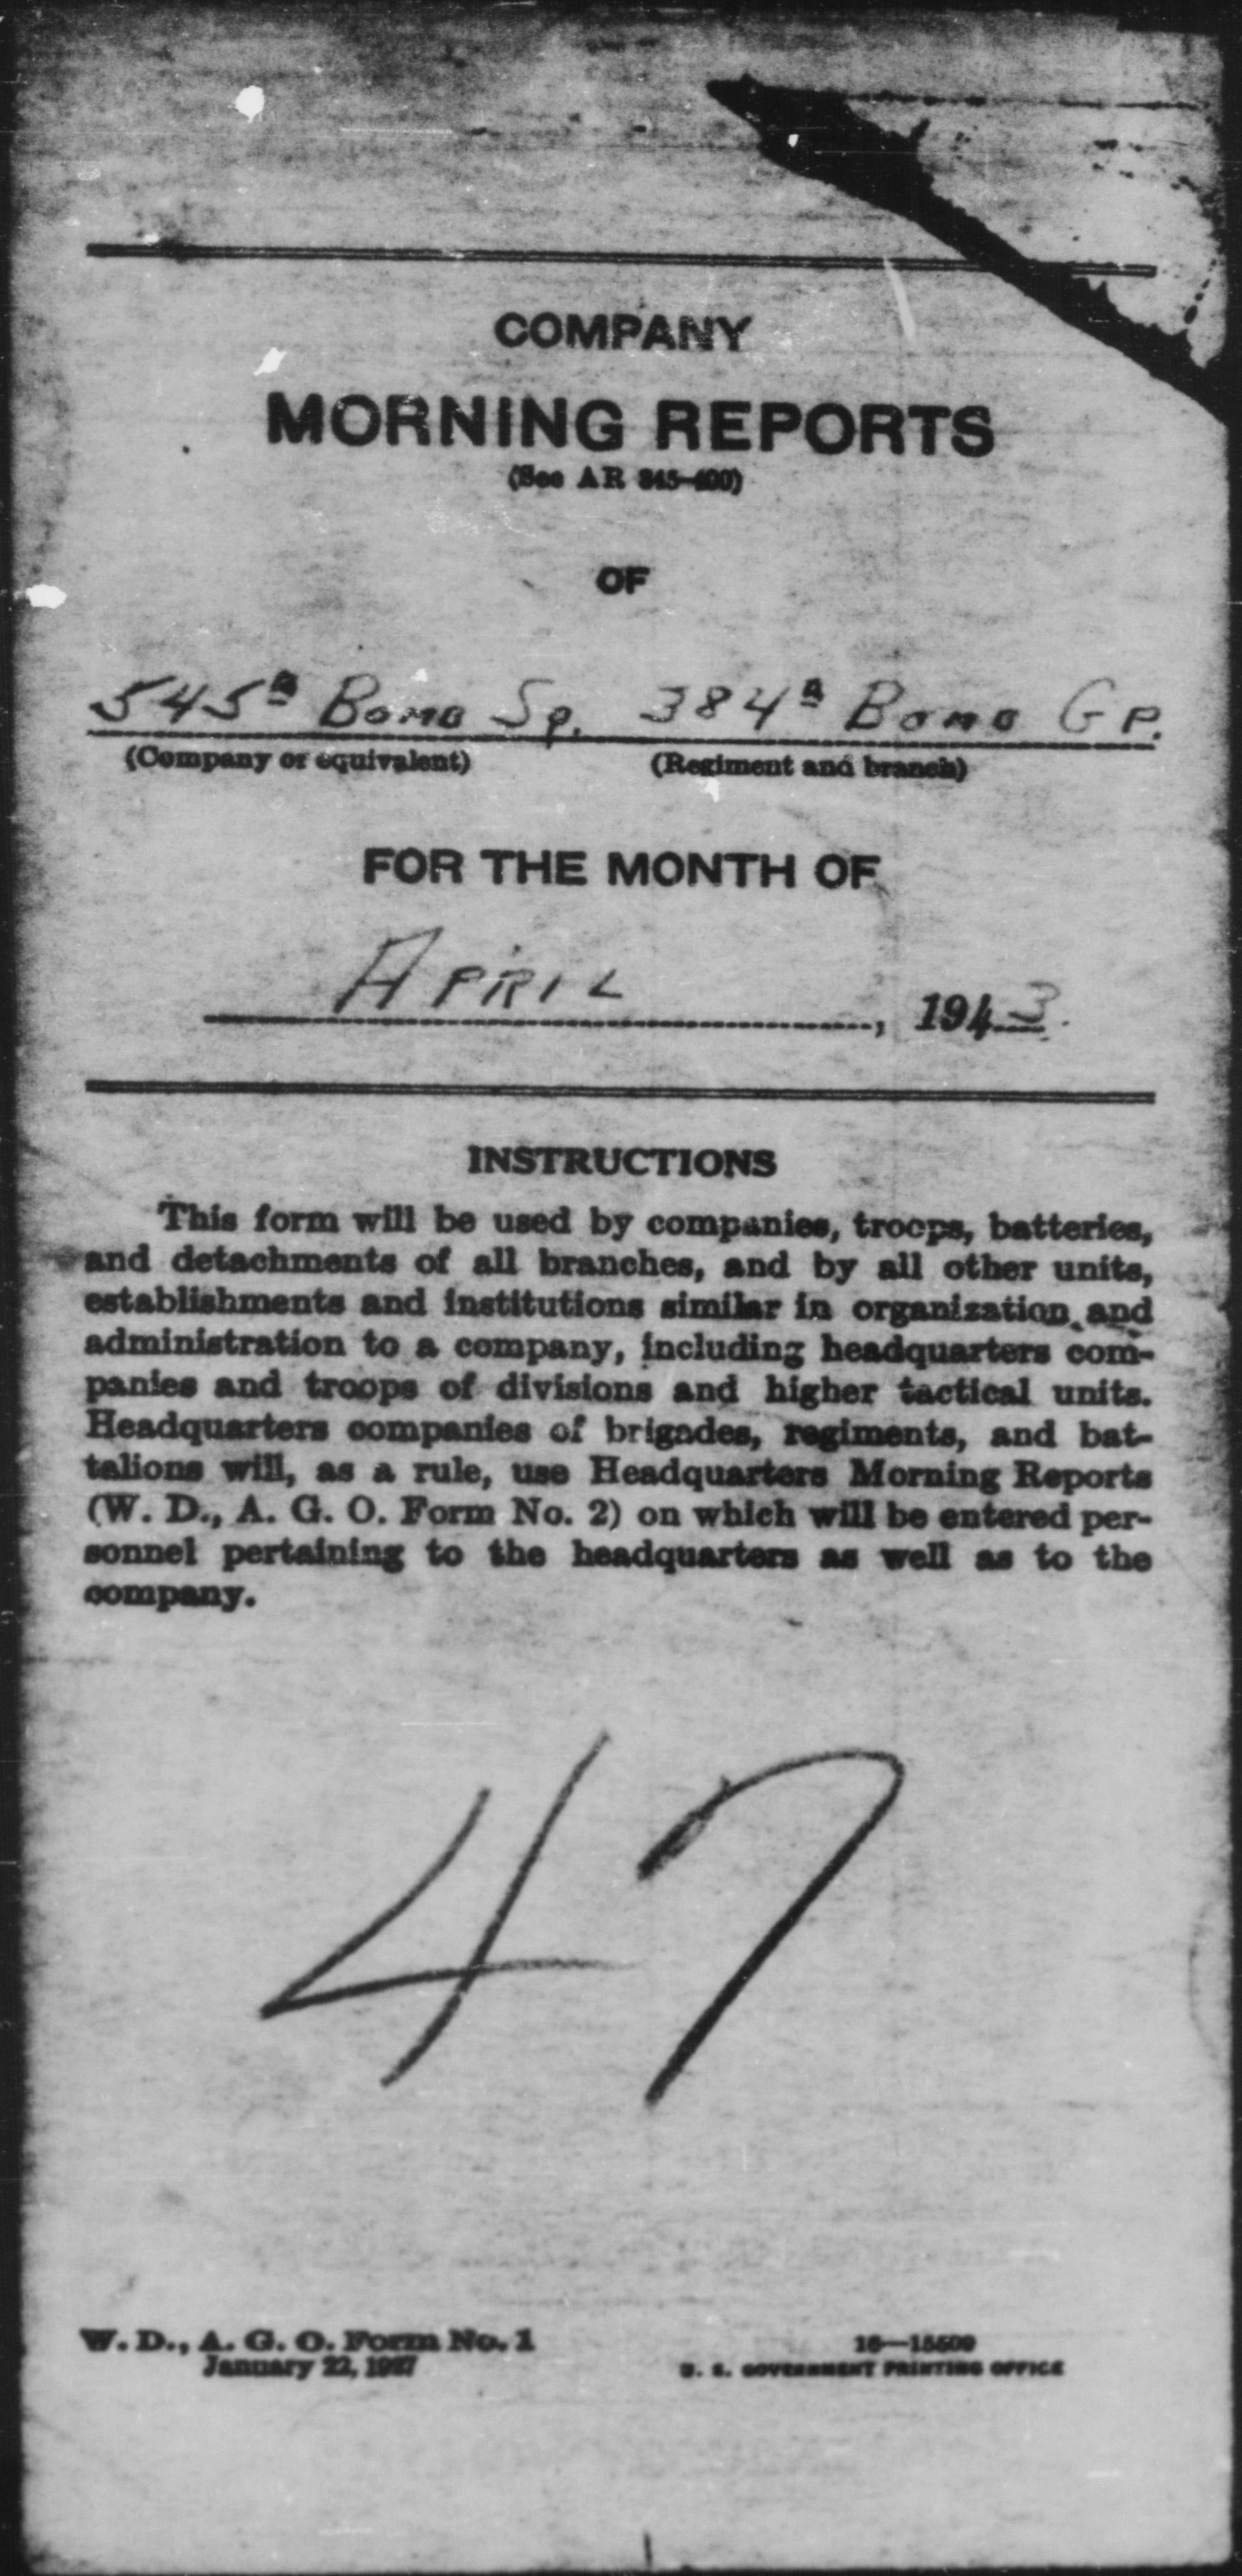 COMPANY
MORNING REPORTS
(See AR 345-400)
OF
545th Bomb Sq. 384th Bomb Gp.
(Company or equivalent) (Regiment and branch)
FOR THE MONTH OF
APRIL, 1943.
INSTRUCTIONS
This form will be used by companies, troops, batteries,
and detachments of all branches, and by all other units,
establishments and institutions similar in organization and
administration to a company, including headquarters com-
panies and troops of divisions and higher tactical units.
Headquarters companies of brigades, regiments, and bat-
talions will, as a rule, use Headquarters Morning Reports
(W. D., A. G. O. Form No. 2) on which will be entered per-
sonnel pertaining to the headquarters as well as to the
company.
47
W. D., A. G. O. Form No. 1 16—15509
January 22, 1927 U. S. GOVERNMENT PRINTING OFFICE